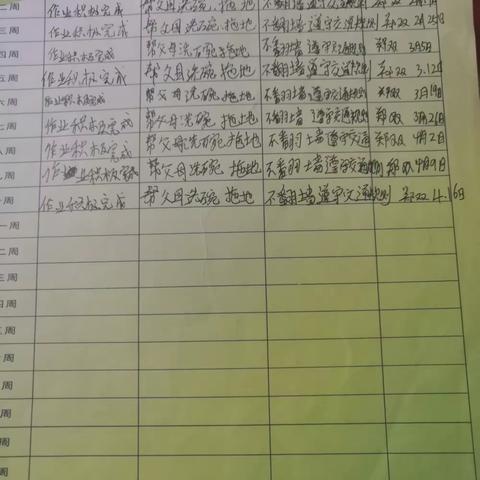 二周 作业积极完成 帮父母洗碗,拖地
三周 作业积极完成 帮父母洗碗,拖地 不翻墙 遵守交通规则 郑双 2月25日
四周 作业积极完成 帮父母洗碗,拖地 不翻墙 遵守交通规则 郑双 3月5日
五周 作业积极完成 帮父母洗碗,拖地 不翻墙 遵守交通规则 郑双 3.12日
六周 作业积极完成 帮父母洗碗,拖地 不翻墙 遵守交通规则 郑双 3月19日
七周 作业积极完成 帮父母洗碗,拖地 不翻墙 遵守交通规则 郑双 3月26日
八周 作业积极完成 帮父母洗碗,拖地 不翻墙 遵守交通 郑双 4月2日
九周 作业积极完成 帮父母洗碗,拖地 不翻墙 遵守交通规则 郑双 4月9日
十周 作业积极完成 帮父母洗碗,拖地 不翻墙 遵守交通规则 郑双 4.16日
一周
二周
三周
四周
周
周
周
周
周
周
周